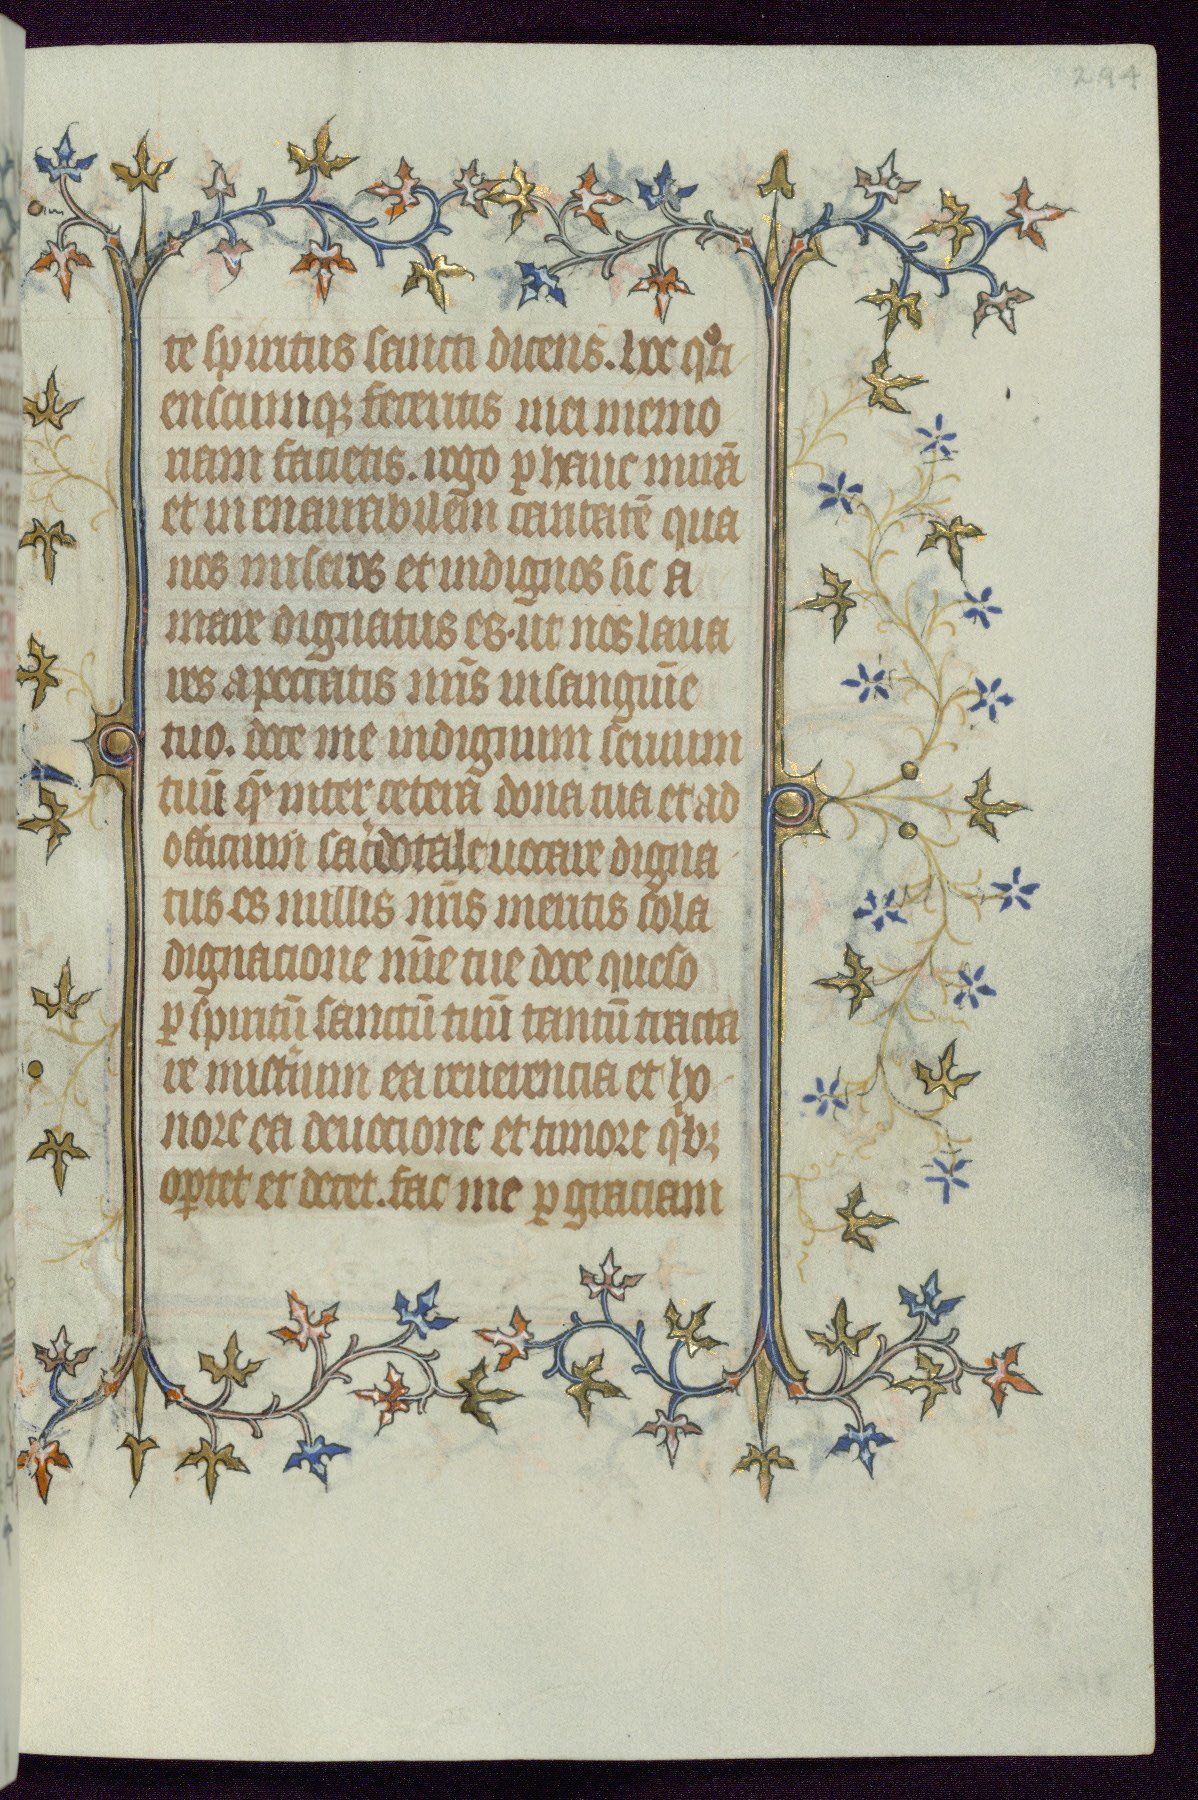 294
te spiritus sancti dicens. hec qͦci
enscumqꝫ feceritis mei memo
riam facietis. rogo ꝑ hanc mirā
et inenarrabilem caritatē qua
nos miseros et indignos sic a
mare dignatus es. ut nos laua
res a peccatis nr̄is in sanguīe
tuo. doce me indignum seruum
tuū qͥ inter cetera dona tua et ad
officium sac̓dotale uocare digna
tus es nullis mr̄is meritis sola
dignacione mīe tue doce queso
ꝑ spiritū sanctū tuū tantū tracta
re mist̓ium ea reuerencia et ho
nore ea deuocione et timore qͥbꝫ
oꝑtet et decet. fac me ꝑ graciam